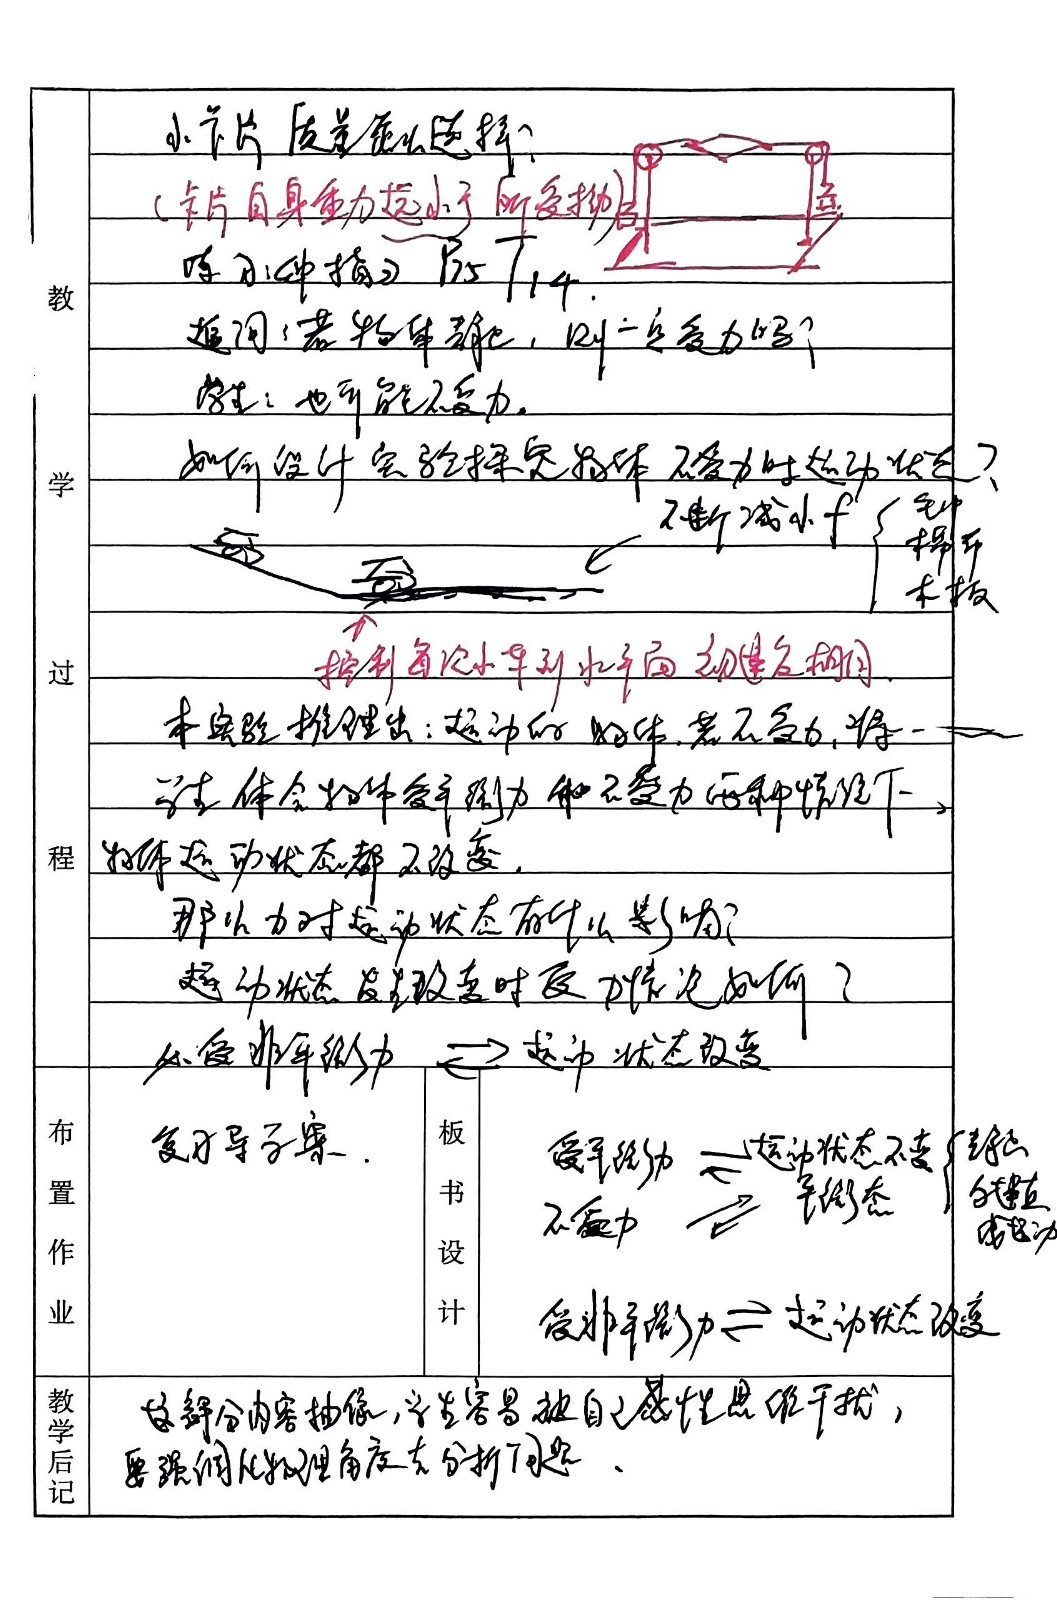 小卡片质量怎么选择?
(卡片自身重力远小于所受拉力)
练习:《冲指》P75 T14.
追问:若物体静止,则一定受力吗?
学生:也可能不受力。
如何设计实验探究物体不受力时运动状态?
不断减小f { 毛巾
棉布
木板
控制每次小车到水平面初速度相同.
本实验推理出:运动的物体,若不受力,将一
学生体会物体受平衡力和不受力两种情况下
物体运动状态都不改变.
那么力对运动状态有什么影响?
运动状态发生改变时受力情况如何?
从受非平衡力 ⇌ 运动状态改变
教学过程
布置作业
复习导学案.
板书设计
受平衡力 ⇌ 运动状态不变 { 静止
平衡态 匀速直
不受力 线运动
受非平衡力 ⇌ 运动状态改变
教学后记
这部分内容抽像,学生容易被自己感性思维干扰,
要强调从物理角度去分析问题.